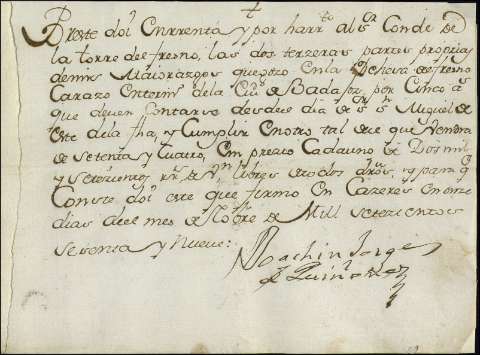 Por este doi En rrenta, y por harr.to al S.r Conde de
la torre del fresno, las dos terzeras partes propias
de mis Maiorazgos que gozo En la Dehesa de fresno
Carazo En termin.o de la Ciu.d de Badajoz por Cinco a.s
que deven Contarse desde el dia de S.n Miguel de
este de la fha, y Cumplir En otro tal de el que Vendra
de setenta y Cuatro, En prezio Cada uno de Dos mil
y setezientos rr.s de V.n libres de todos dros, y pam q.e
Conste doi este que firmo En Cazeres En onze
dias de el mes de de Mill setezientos
sesenta y Nueve:
Joachin Jorge
de Quiñones